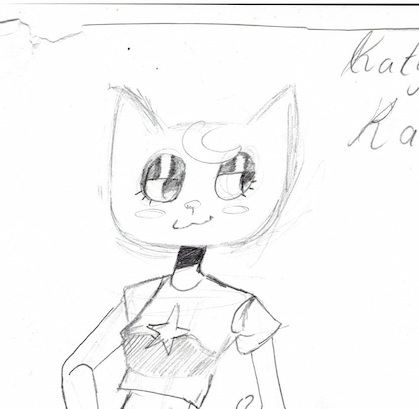 Katy
Ka